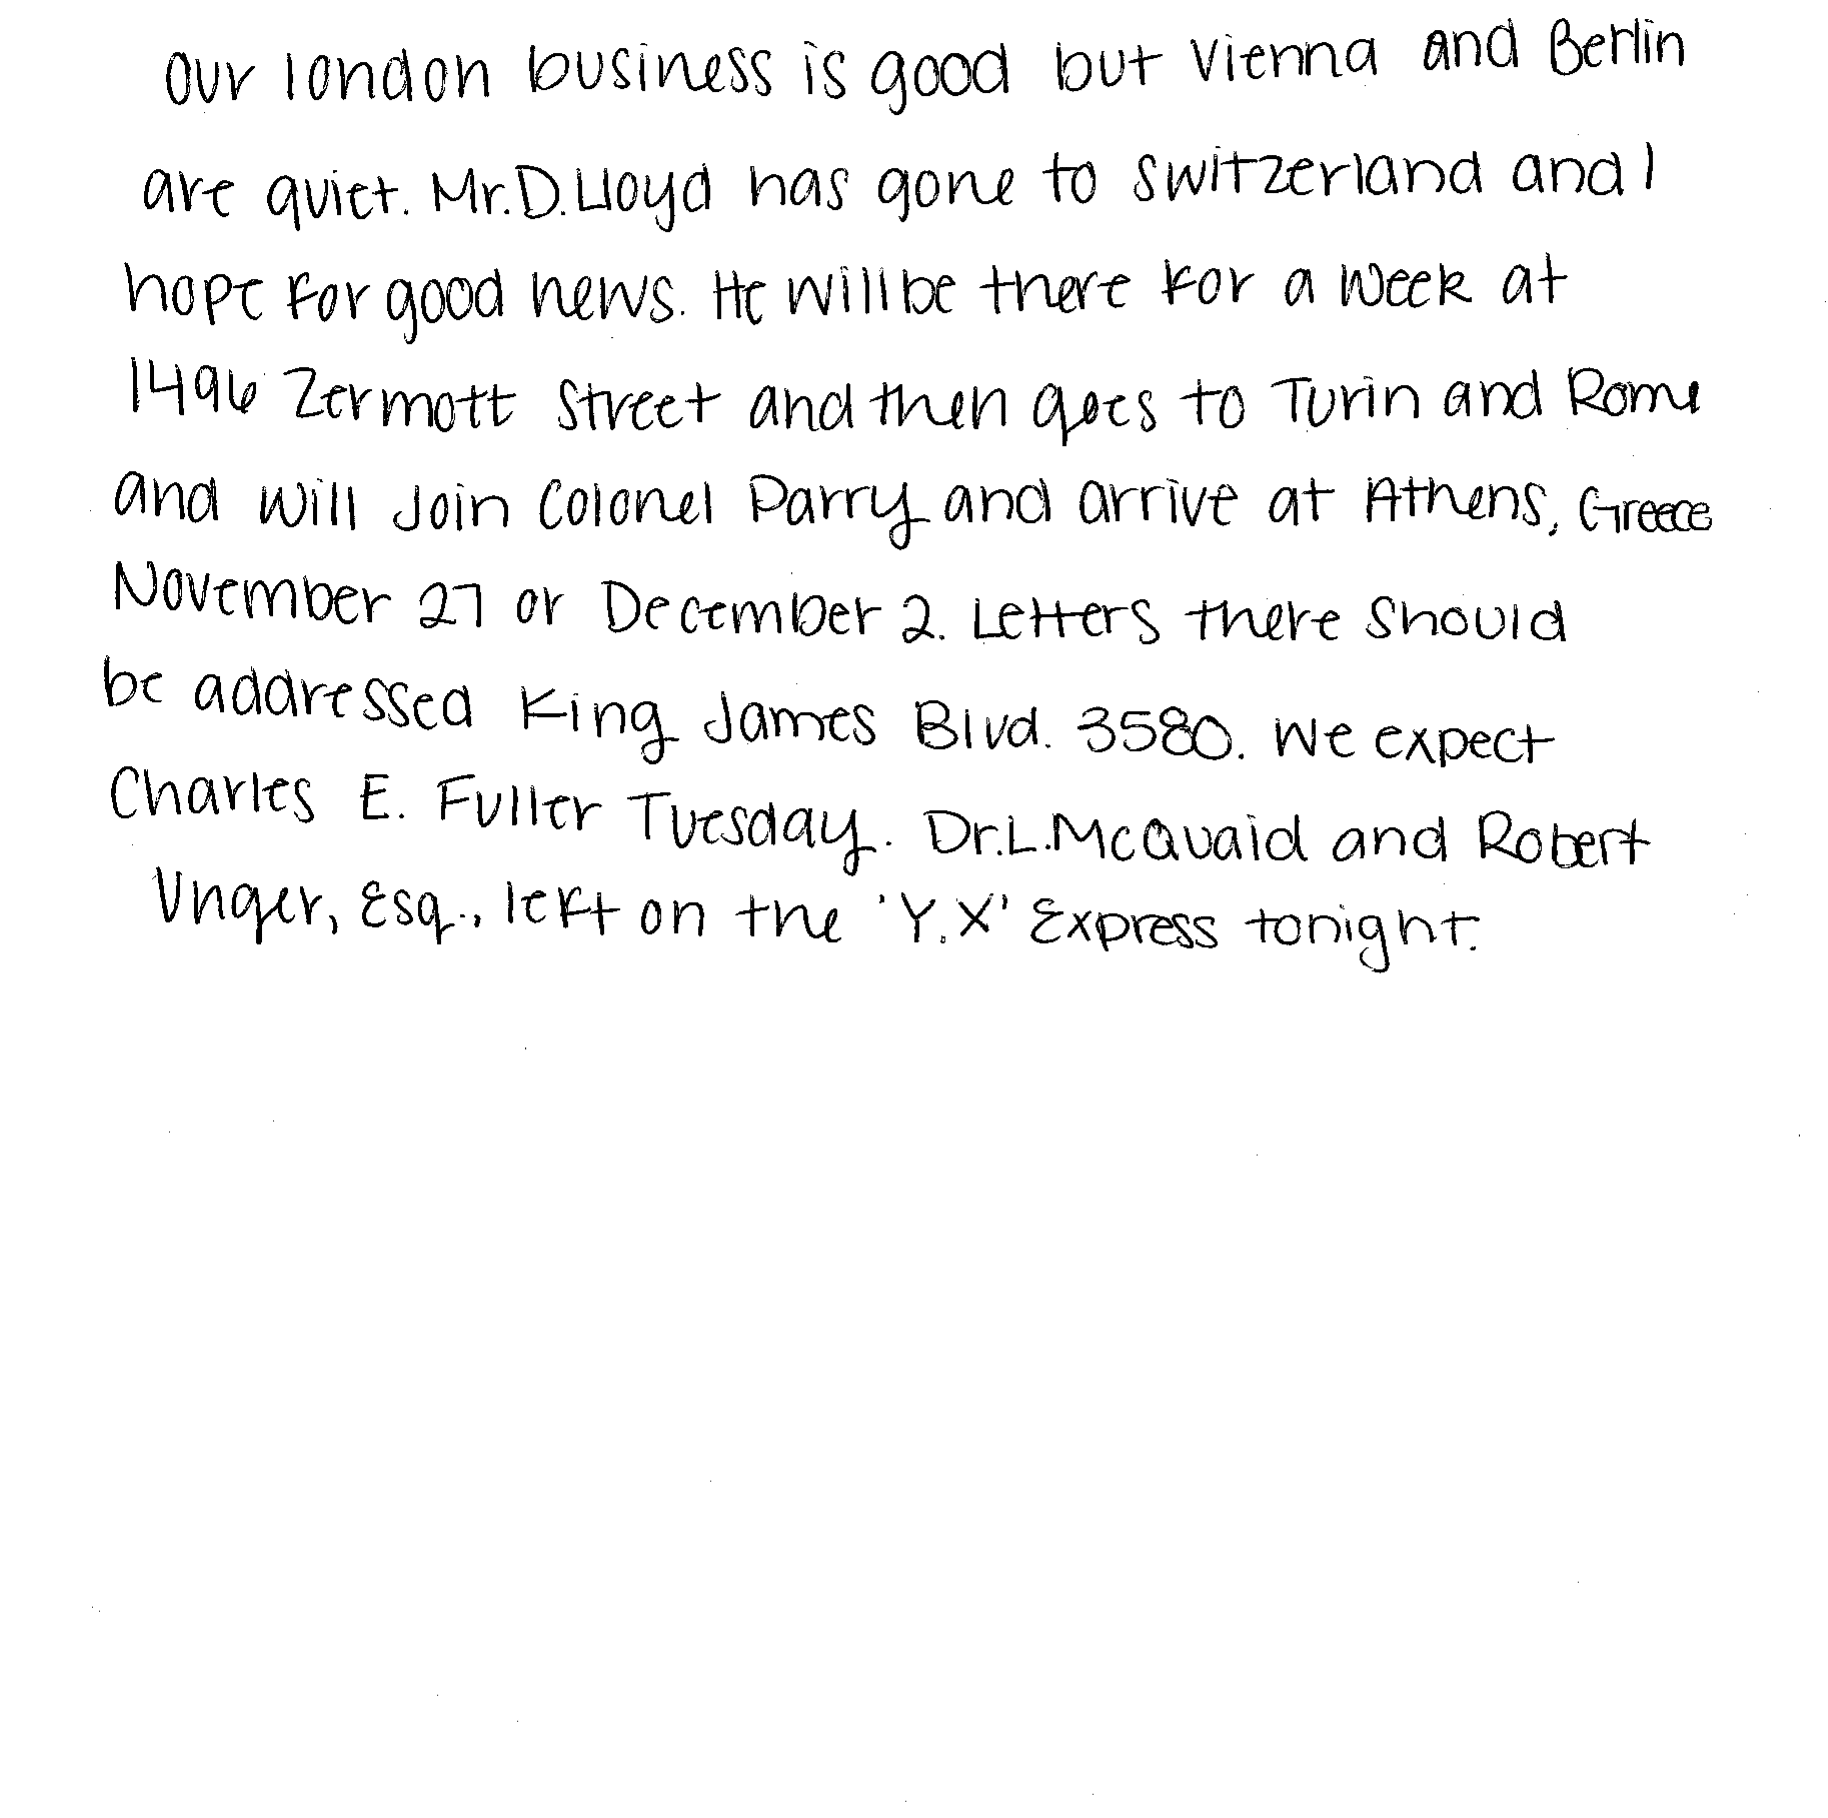 Our london business is good but Vienna and Berlin
are quiet. Mr. D. Lloyd has gone to Switzerland and I
hope for good news. He will be there for a week at
1496 Zermott Street and then goes to Turin and Rome
and will Join Colonel Parry and arrive at Athens, Greece
November 27 or December 2. Letters there should
be addressed King James Blvd. 3580. We expect
Charles E. Fuller Tuesday. Dr. L. McQuaid and Robert
Unger, Esq., left on the 'Y.X' Express tonight.